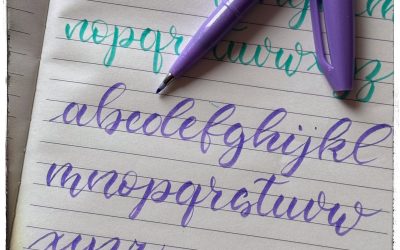 nopqr uvw z
abcdefghijkl
mnopqrstuvw
xyz